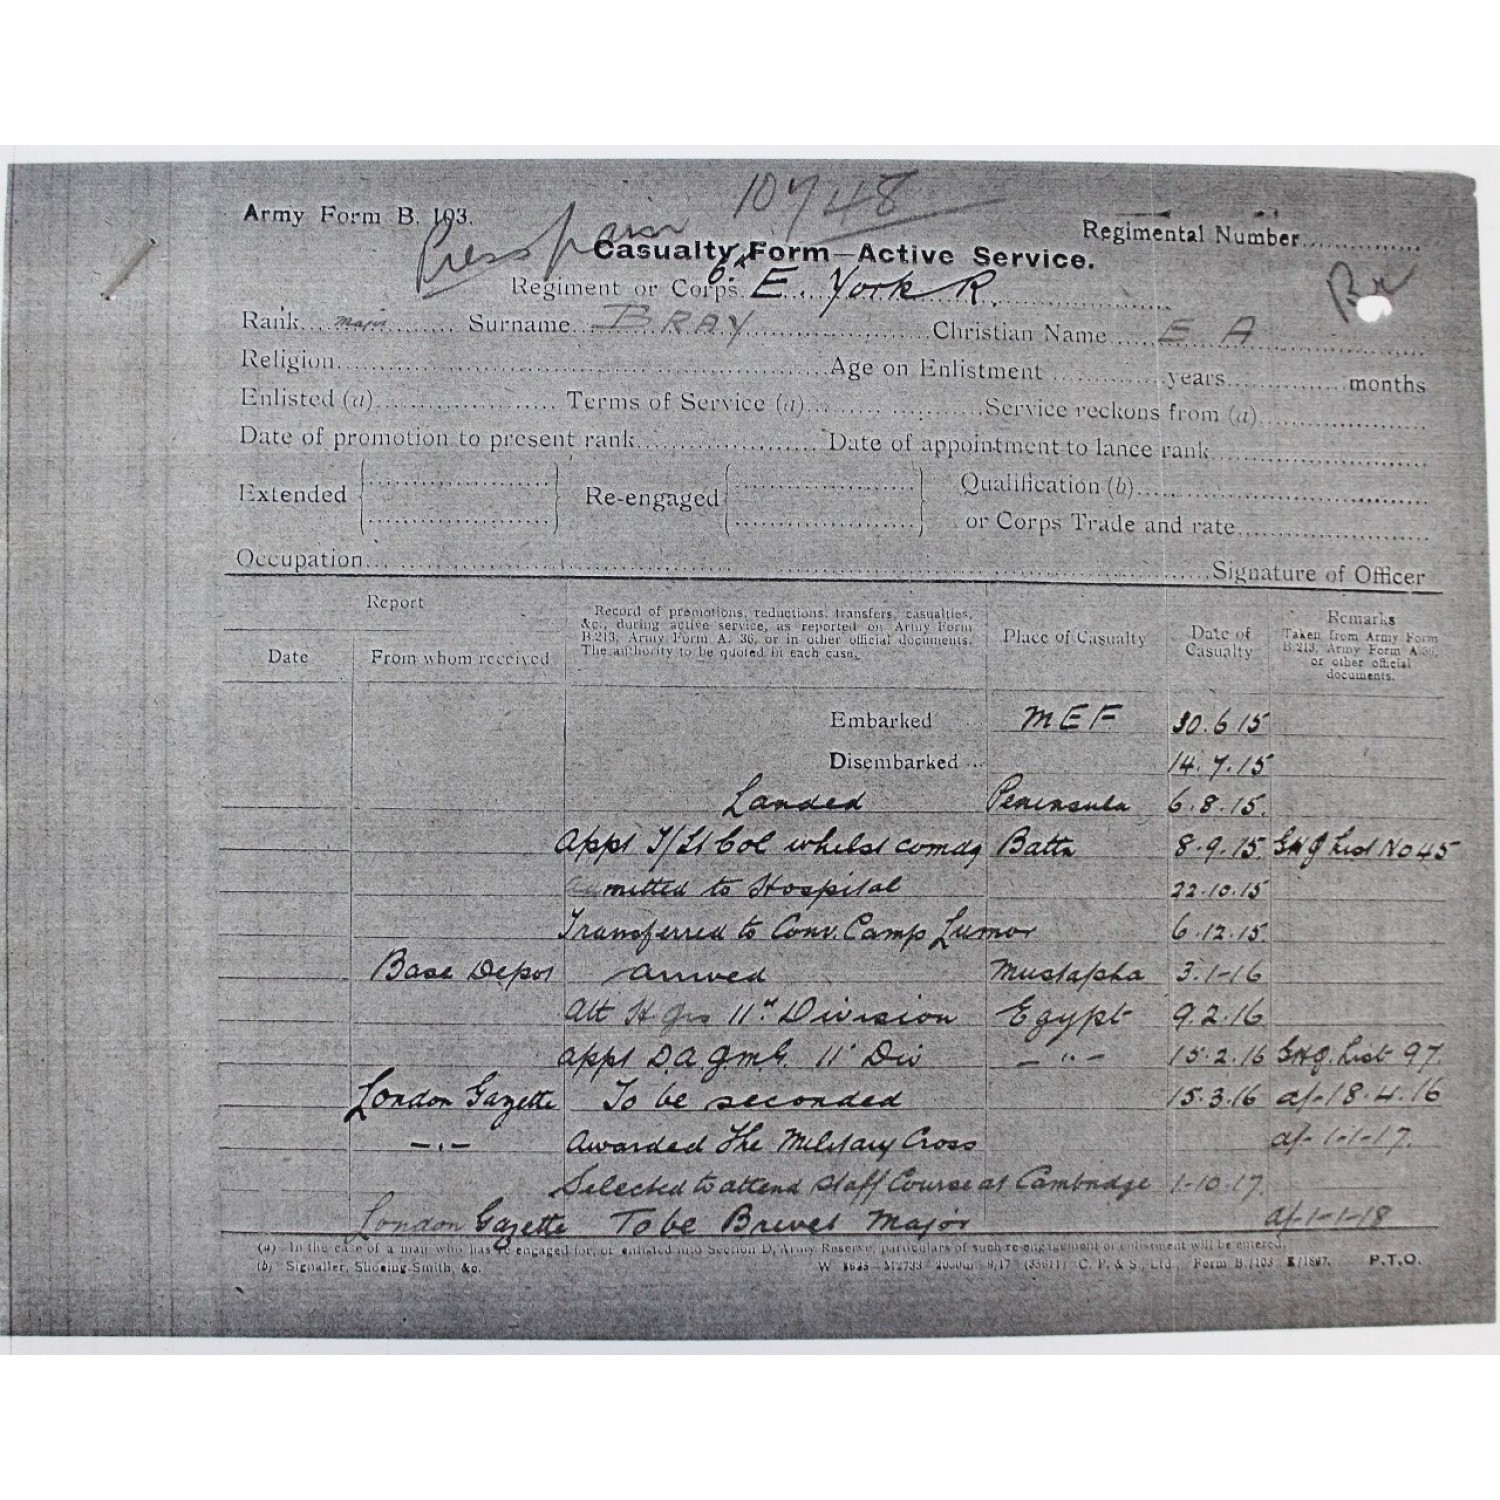 10748
Army Form B. 103.
Regimental Number
Casualty Form—Active Service.
Regiment or Corps 6th E. York R.
Rank Major Surname BRAY Christian Name E A
Religion Age on Enlistment years months
Enlisted (a) Terms of Service (a) Service reckons from (a)
Date of promotion to present rank Date of appointment to lance rank
Extended Re-engaged Qualification (b)
or Corps Trade and rate
Occupation Signature of Officer
Report
Date
From whom received
Record of promotions, reductions, transfers, casualties,
&c., during active service, as reported on Army Form
B.213, Army Form A. 36, or in other official documents.
The authority to be quoted in each case.
Place of Casualty
Date of
Casualty
Remarks
Taken from Army Form
B.213, Army Form A.36,
or other official
documents.
Embarked MEF 30.6.15
Disembarked 14.7.15
Landed Peninsula 6.8.15.
appt T/Lt Col whilst comdg Battn 8.9.15. GHQ List No 45
admitted to Hospital 22.10.15
Transferred to Conv. Camp 6.12.15.
Base Depot arrived Mustapha 3.1-16
Att H.Qrs 11th Division Egypt 9.2.16
appt D.A.Q.M.G. 11 Div — " — 15.2.16 GHQ. List 97.
London Gazette To be seconded 15.3.16 d/-18.4.16
— " — Awarded The Military Cross d/- 1-1-17.
Selected to attend Staff Course at Cambridge 1-10.17.
London Gazette To be Brevet Major d/-1-1-18
(a) In the case of a man who has re-engaged for, or enlisted into Section D, Army Reserve, particulars of such re-engagement or enlistment will be entered.
(b) Signaller, Shoeing-Smith, &c. C. P. & S., Ltd., Form B./103 P.T.O.